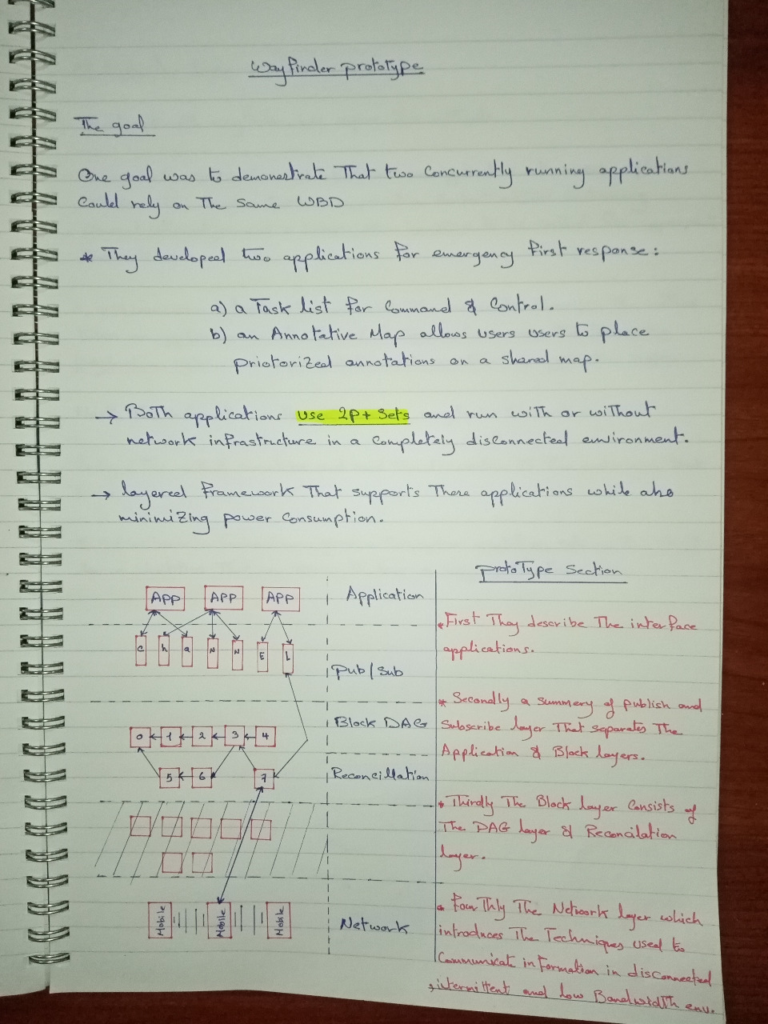 Wayfinder prototype
The goal
One goal was to demonstrate That two Concurrently running applications
Could rely on The Same WBD
* They developed two applications for emergency first response:
a) a Task list for Command & Control.
b) an Annotative Map allows users users to place
priotorized annotations on a shared map.
→ Both applications use 2P+ Sets and run with or without
network infrastructure in a completely disconnected environment.
→ layered Framework That supports These applications while also
minimizing power Consumption.
APP APP APP
Application
C h a N N E L
Pub/Sub
0 1 2 3 4
Block DAG
5 6 7
Reconcillation
Mobile Mobile Mobile
Network
ProtoType Section
* First They describe The interface
applications.
* Secondly a summary of publish and
Subscribe layer That separates The
Application & Block layers.
* Thirdly The Block layer Consists of
The DAG layer & Reconcilation
layer.
* FourThly The Network layer which
introduces The Techniques used to
Communicate information in disconnected
, intermittent and low Bandwidth env.